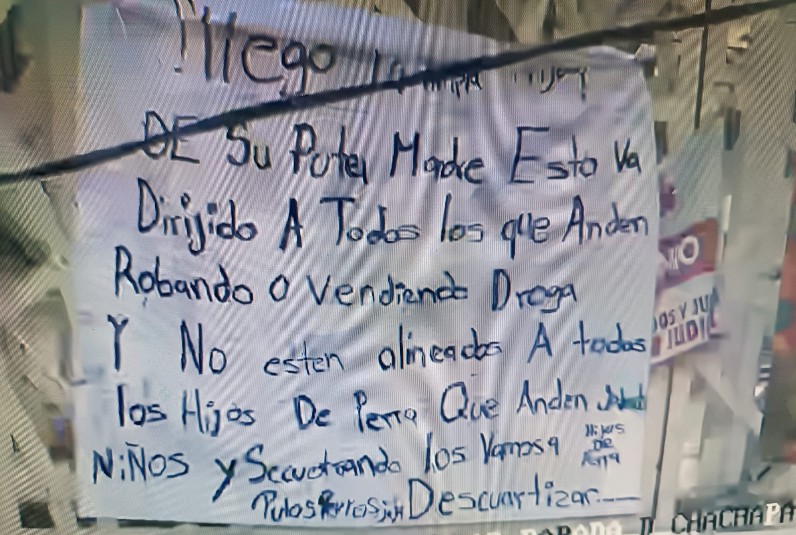 ¡llego la limpia Hijos
DE Su Puta Madre Esto Va
Dirijido A Todos los que Anden
Robando O Vendiendo Droga
Y No esten alineados A todos
los Hijos De Perra Que Anden
NiÑOS y Secuestrando los Vamos a
Hijos
DE
Perra
Putos Perros Descuartizar
NO
OS Y JU
JUDI
PARADA D CHACHAPA